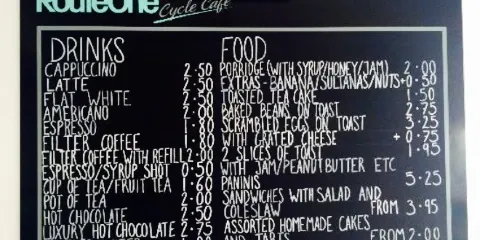 RouteOne
Cycle Cafe
DRINKS
CAPPUCCINO 2.50
LATTE 2.50
FLAT WHITE 2.50
AMERICANO 2.00
ESPRESSO 1.80
FILTER COFFEE 1.80
FILTER COFFEE WITH REFILL 2.00
ESPRESSO/SYRUP SHOT 0.50
CUP OF TEA/FRUIT TEA 1.60
POT OF TEA 2.00
HOT CHOCOLATE 2.50
LUXURY HOT CHOCOLATE 2.75
FOOD
PORRIDGE (WITH SYRUP/HONEY/JAM) 2.00
EXTRAS - BANANA/SULTANAS/NUTS +0.50
TOASTED TEA CAKE 1.50
BAKED BEANS ON TOAST 2.75
SCRAMBLED EGGS ON TOAST 3.25
WITH GRATED CHEESE +0.75
2 SLICES OF TOAST 1.95
WITH JAM/PEANUT BUTTER ETC
PANINIS 5.25
SANDWICHES WITH SALAD AND
COLESLAW FROM 3.95
ASSORTED HOMEMADE CAKES
AND TARTS FROM 2.00